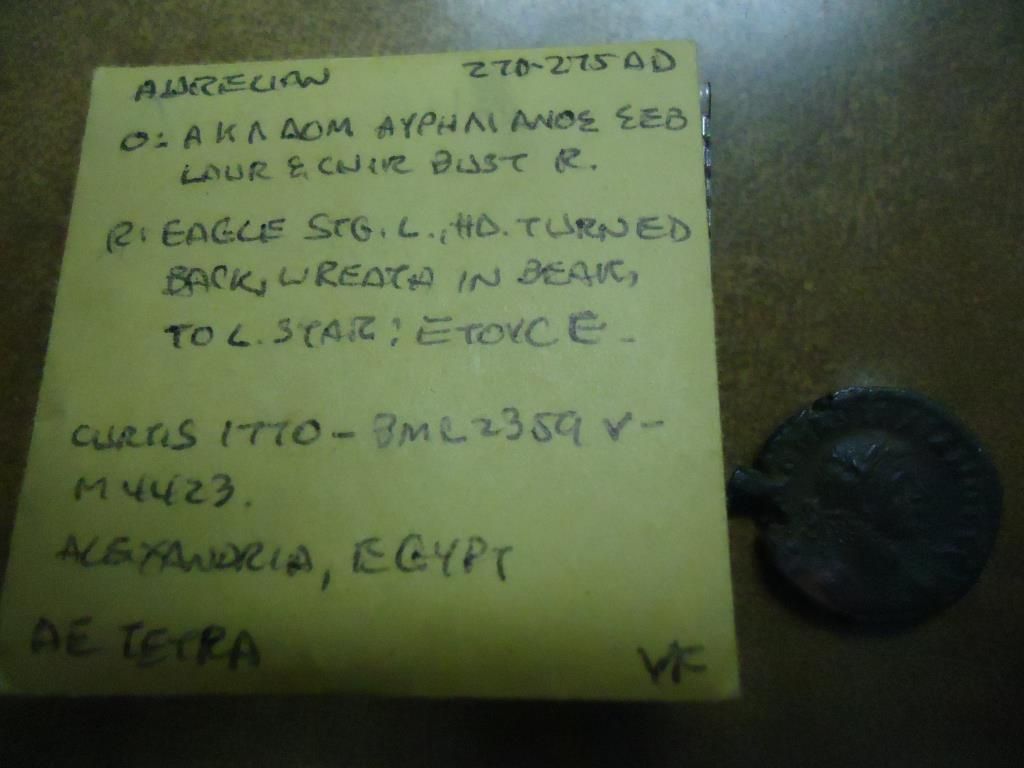 AURELIAN 270-275 AD
O: Α Κ Λ ΔΟΜ ΑΥΡΗΛΙΑΝΟΣ ΣΕΒ
LAUR & CUIR BUST R.
R: EAGLE STG. L., HD. TURNED
BACK, WREATH IN BEAK,
TO L. STAR; ΕΤΟΥC Ε -
CURTIS 1770 - BMC 2359 V -
M 4423.
ALEXANDRIA, EGYPT
AE TETRA